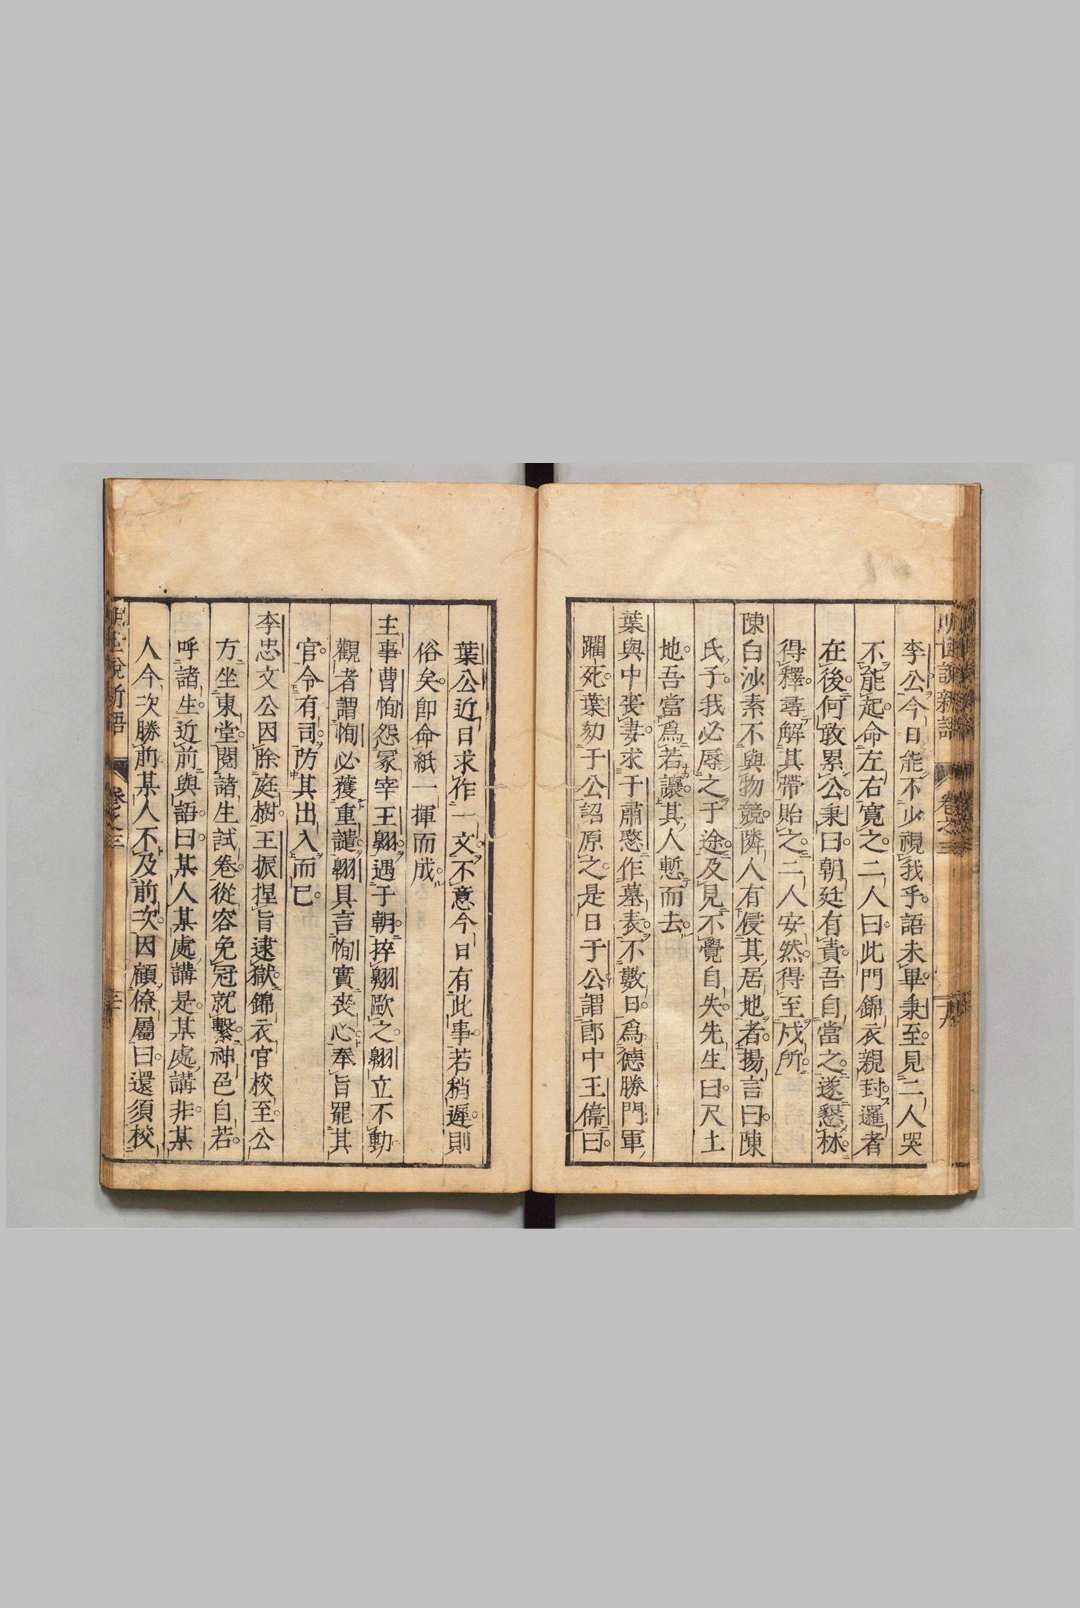 李公今日能不少視我乎語未畢秉至見二人哭
不能起命左右寛之二人曰此門錦衣親封邏者
在後何敢累公秉曰朝廷有責吾自當之遂懇秫
得釋尋解其帶貽之二人安然得至戍所
陳白沙素不與物競隣人有侵其居地者揚言曰陳
氏子我必辱之于途及見不覺自失先生曰尺土
地吾當爲若讓其人慙而去
葉與中喪妻求于肅愍作墓表不數日爲德勝門軍
躙死葉劾于公詔原之是日于公謂郎中王偹曰
葉公近日求作一文不意今日有此事若稍遲則
俗矣卽命紙一揮而成
主事曹恂怨冢宰王翺遇于朝捽翺歐之翺立不動
觀者謂恂必獲重譴翺具言恂實喪心奉旨罷其
官令有司防其出入而已
李忠文公因除庭樹王振捏旨逮獄錦衣官校至公
方坐東堂閱諸生試卷從容免冠就繫神色自若
呼諸生近前與語曰某人某處講是某處講非某
人今次勝前某人不及前次因顧僚屬曰還須校
明世說新語 卷之三